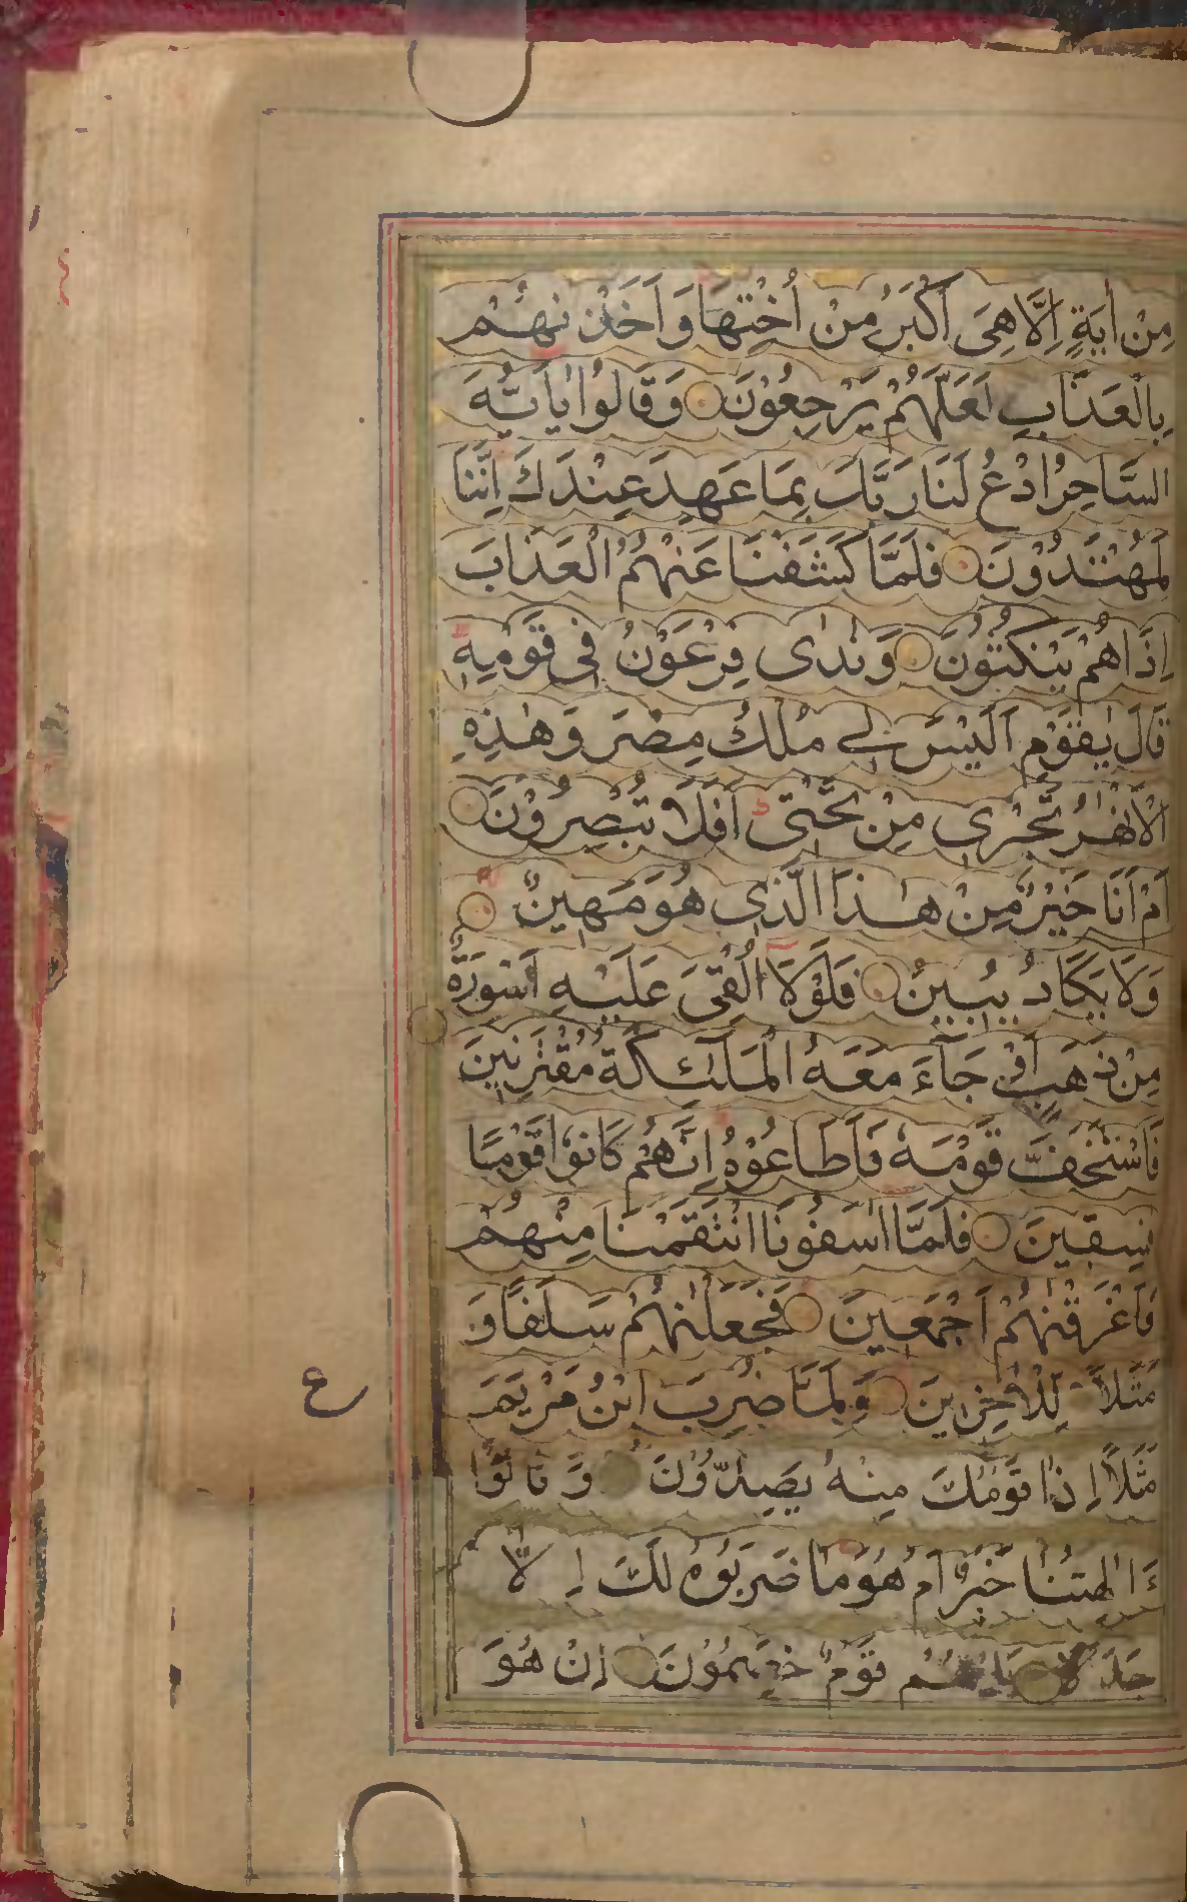 مِنْ اٰيَةٍ اِلَّا هِىَ اَكْبَرُ مِنْ اُخْتِهَا وَ اَخَذْنٰهُمْ
بِالْعَذَابِ لَعَلَّهُمْ يَرْجِعُوْنَ وَ قَالُوْا يٰاَيُّهَ
السَّاحِرُ ادْعُ لَنَا رَبَّكَ بِمَا عَهِدَ عِنْدَكَ اِنَّنَا
لَمُهْتَدُوْنَ فَلَمَّا كَشَفْنَا عَنْهُمُ الْعَذَابَ
اِذَا هُمْ يَنْكُثُوْنَ وَ نَادٰى فِرْعَوْنُ فِى قَوْمِهٖ
قَالَ يٰقَوْمِ اَلَيْسَ لِے مُلْكُ مِصْرَ وَ هٰذِهِ
الْاَنْهٰرُ تَجْرِى مِنْ تَحْتِى اَفَلَا تُبْصِرُوْنَ
اَمْ اَنَا خَيْرٌ مِنْ هٰذَا الَّذِى هُوَ مَهِينٌ
وَ لَا يَكَادُ يُبِينُ فَلَوْلَا اُلْقِىَ عَلَيْهِ اَسْوِرَةٌ
مِنْ ذَهَبٍ اَوْ جَآءَ مَعَهُ الْمَلٰٓئِكَةُ مُقْتَرِنِينَ
فَاسْتَخَفَّ قَوْمَهٗ فَاَطَاعُوْهُ اِنَّهُمْ كَانُوْا قَوْمًا
فٰسِقِينَ فَلَمَّا اٰسَفُونَا انْتَقَمْنَا مِنْهُمْ
فَاَغْرَقْنٰهُمْ اَجْمَعِينَ فَجَعَلْنٰهُمْ سَلَفًا وَ
مَثَلًا لِلْاٰخِرِينَ وَ لَمَّا ضُرِبَ ابْنُ مَرْيَمَ
مَثَلًا اِذَا قَوْمُكَ مِنْهُ يَصِدُّوْنَ وَ قَالُوْا
ءَاٰلِهَتُنَا خَيْرٌ اَمْ هُوَ مَا ضَرَبُوْهُ لَكَ اِلَّا
جَدَلًا بَلْ هُمْ قَوْمٌ خَصِمُوْنَ اِنْ هُوَ
ع